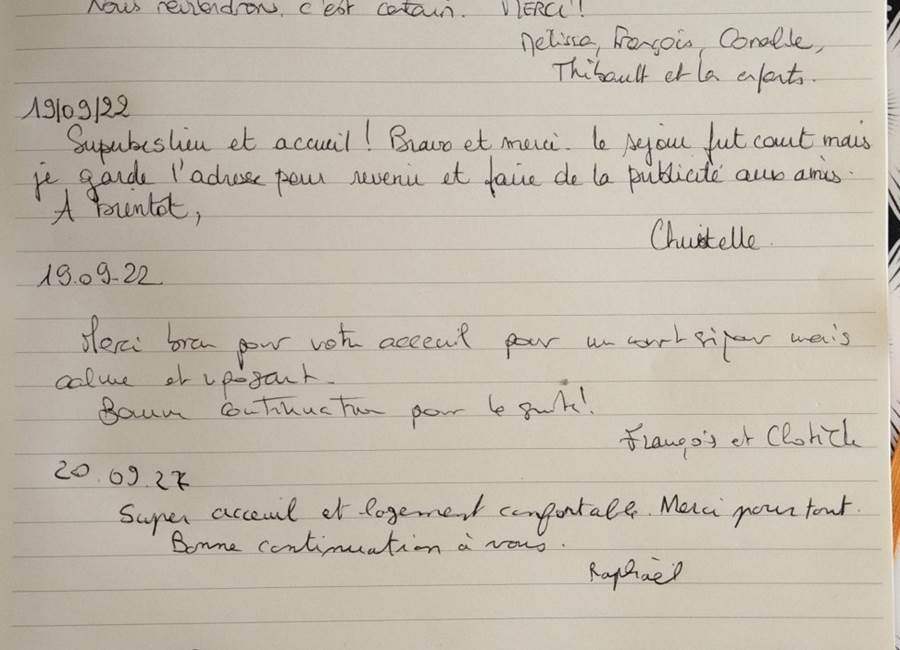 Nous reviendrons, c'est certain. MERCI!
Mélissa, François, Coralie,
Thibault et les enfants.
19/09/22
Superbes lieu et accueil! Bravo et merci. Le séjour fut court mais
je garde l'adresse pour revenir et faire de la publicité aux amis.
A bientôt,
Christelle.
19.09.22
Merci bien pour votre acceuil pour un court séjour mais
calme et reposant.
Bonne continuation pour la suite!
François et Clotilde
20.09.22
Super acceuil et logement confortable. Merci pour tout.
Bonne continuation à vous.
Raphaël